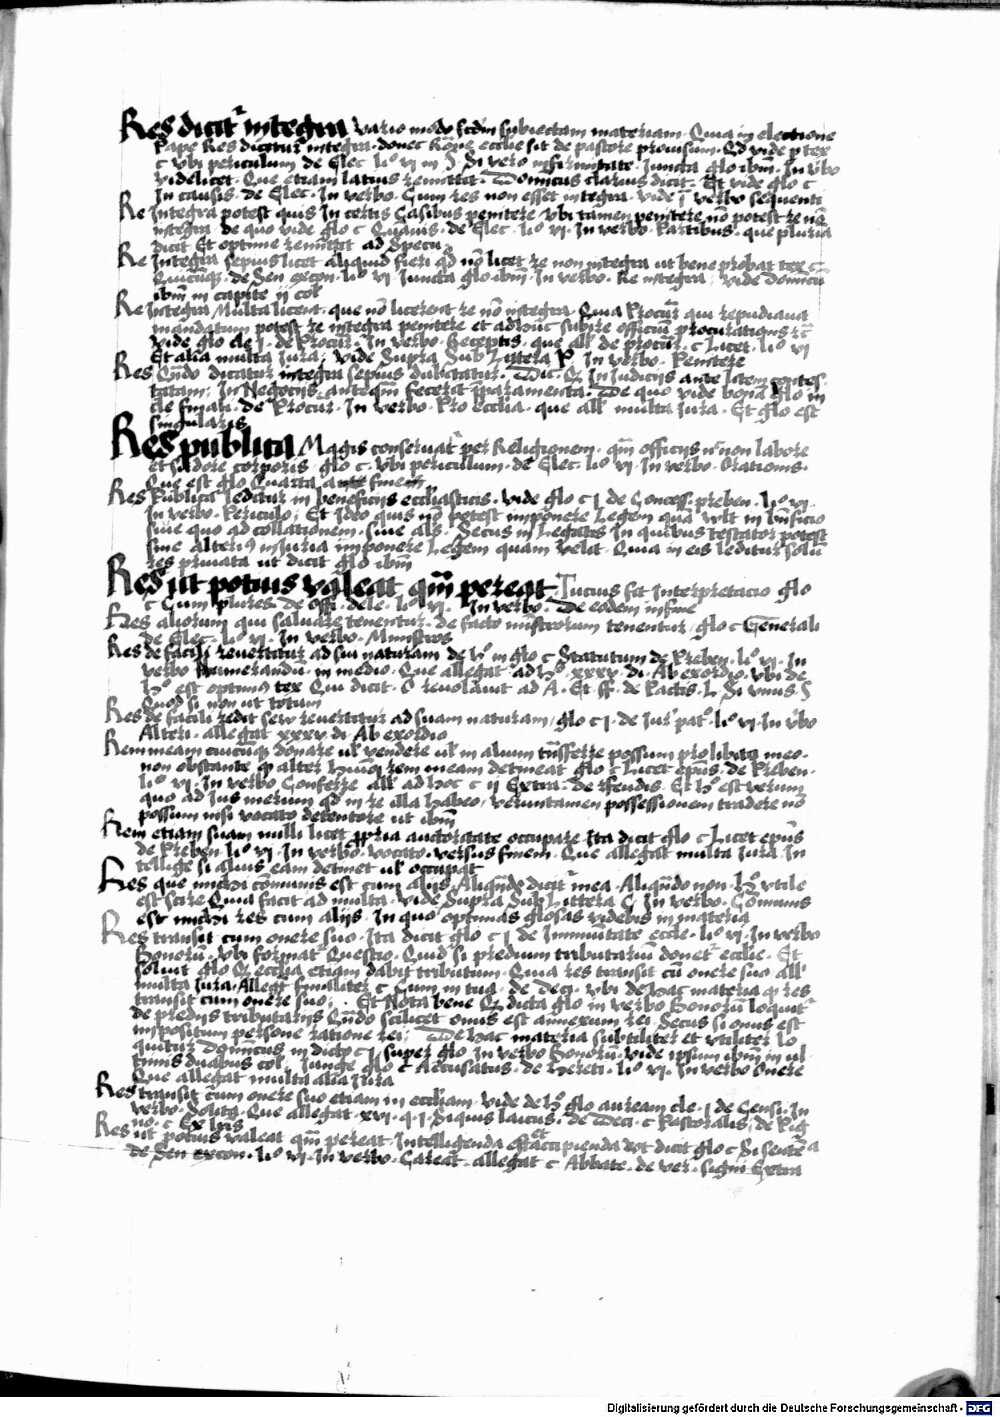 Res dicit᷑ integra vario modo scdm subiectam materiam · Quia in electione
Pape Res dicitur integra · donec Rōne ecclie sit de pastore prouisum · Qd vide p tex
c vbi periculum de Elec li° vi in § Si vero infirmitate · Juncta glo ibm̄ · In v̄bo
videlicet · Que etiam latius remittit · Dominicus clarius dicit · Et vide glo c
In causis · de Elec · In verbo · Cum res non esset integra · vide j verbo sequenti
Re Integra potest quis In certis Casibus penitere vbi tamen penitere nō potest re nō
integra · de quo vide glo c Quamis · de Elec · li° vi · In verbo · Partibus · que pluria
dicit Et optime remittit ad Specu ·
Re Integra sepius licet aliquid fieri qd nō licet re non integra ut bene probat tex c
Quicūq · de Sen excon · li° vi Juncta glo ibm̄ · In verbo · Re integra · vide Dominicū
ibm̄ in capite ij col
Re Integra Multa licent · que nō licerent re nō integra · Quia Procur᷑ qui repudiauit
mandatum potest re integra penitere et adhuc subire officiū procurationis rc̄
vide glo cle j · de Procur᷑ · In verbo · Receptis · que all᷑ de procur᷑ · c Licet · li° vi
Et alia multa Jura · vide Supra Sub Littera P · In verbo · Penitere
Res Qn̄do dicatur integra sepius dubitatur · Dic · Q In Judicijs ante litem contes·
tatam · In Negocijs anteqm̄ fecerat p̄paramenta · De quo vide bonā glo in
cle finali · de Procur · In verbo · Pro ecclia · que all᷑ multa Jura · Et glo est
singularis
Res publica Magis conseruat᷑ per Religionem · qm̄ officijs uel non labore
et sudore corporis · glo c · vbi periculum · de Elec li° vi · In verbo · Orationis ·
Que est glo Quarta ante finem
Res Publica leditur in beneficijs ecclīasticis · vide glo c j de Concess᷑ preben · li° vi ·
In verbo · Periculo · Et Ideo quis nō potest imponere Legem quā wlt in bn̄ficio
siue quo ad collationem · siue als · Secus in Legatis In quibus testator potest
sine alteri᷒ iniuria imponere Legem quam velit · Quia in eis leditur solū
res priuata ut dicit glo ibm̄
Res ut potius valeat qm̄ pereat Tucius fit Interpretacio glo
c Cum plures · de off᷑ · dele · li° vi · In verbo · De eodem infine
Res aliorum qui saluare tenentur · de facto ministrorum tenentur · glo c Generali
de Elec · li° vi · In verbo · Ministros
Res de facili reuertitur ad sui naturam de h° in glo c Statutum de Preben · li° vi · In
verbo Numerandis · in medio · Que allegat · ad h° · xxxv · di · Ab exordio · vbi de
h° est optim᷒ tex Qui dicit · O reuoluit ad A · Et ff · de Pactis · L · Si vnus · §
Quod si non ut totum
Res de facili redit sew reuertitur ad suam naturam · glo c j · de Jur᷑ pat᷑ · li° vi · In v̄bo
Alteri · allegat xxxv di · Ab exordio
Rem meam cuicūq donare ul᷑ vendere ul᷑ in alium trn̄sferre possum pro libito meo ·
non obstante qp alter hm̄oi rem meam detineat glo c Licet epūs · de Preben ·
li° vi · In verbo Conferre all᷑ ad hoc c ij Extra · de rescriptis · Et h° est verum
quo ad Jus merum qd in re illa habeo · veruntamen possessionem tradere nō
possum nisi vocato detentore ut ibm̄
Rem etiam suam nulli licet p̄pria auctoritate occupare Ita dicit glo c Licet epūs
de Preben li° vi · In verbo · vocato · versus finem · Que allegat multa Jura · In
tellige si alius eam detinet ul᷑ occupat
Res que michi cōmunis est cum alijs · Aliqn̄do dicit᷑ mea · Aliqn̄do non · h° vtile
est scire Quia facit ad multa · vide Supra Sub Littera C · In verbo · Cōmunis
est michi res cum alijs · In quo optimas glosas videbis in materia
Res transit cum onere suo · Ita dicit glo c j de Immūitate eccle · li° vj · In verbo
Bonorū · vbi format᷑ Questio · Quid si predium tributariū donet᷑ ecclie · Et
soluit glo Q ecclia etiam dabit tributum · Quia res transit cū onere suo all᷑
multa Jura · Allegt finaliter c Cum in tua · de Deci · vbi de hac materia qp res
transit cum onere suo · Et Nota bene Q dicta glo in verbo Bonorū loquit᷑
de predijs tributarijs Qn̄do scilicet onus est annexum rei · Secus si onus est
impositum persone ratione rei · De hac materia subtiliter et vtiliter lo
quitur Dominicus in dicto c j super glo In verbo Bonorū · vide ipsum ibm̄ in ul
timis duabus col · Junge glo c Accusatus · de Hereti · li° vi · In verbo Onere
Que allegat multa alia Jura
Res transit cum onere suo etiam in eccliam · vide de h° glo auream cle · j de Censi · In
verbo · Solita · Que allegat · xvi · q · j · Si quis laicus · de Deci · c Pastoralis · de Pig
no · c Ex lr̄is
Res ut potius valeat qm̄ pereat · Intelligenda et accipienda est dicit glo c Si sentē a
de Sen excon · li° vi · In verbo · Careat · allegat c Abbate · de ver · signi Extra
Digitalisierung gefördert durch die Deutsche Forschungsgemeinschaft - DFG